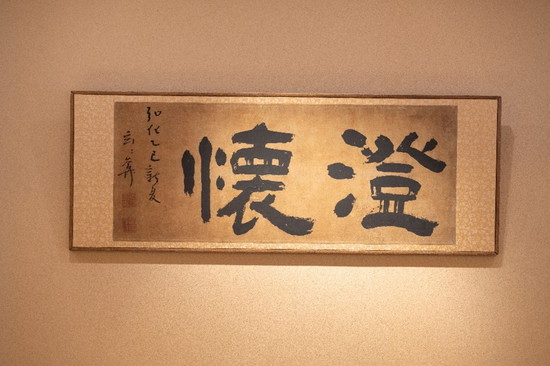 澄懷
弘化乙巳新夏